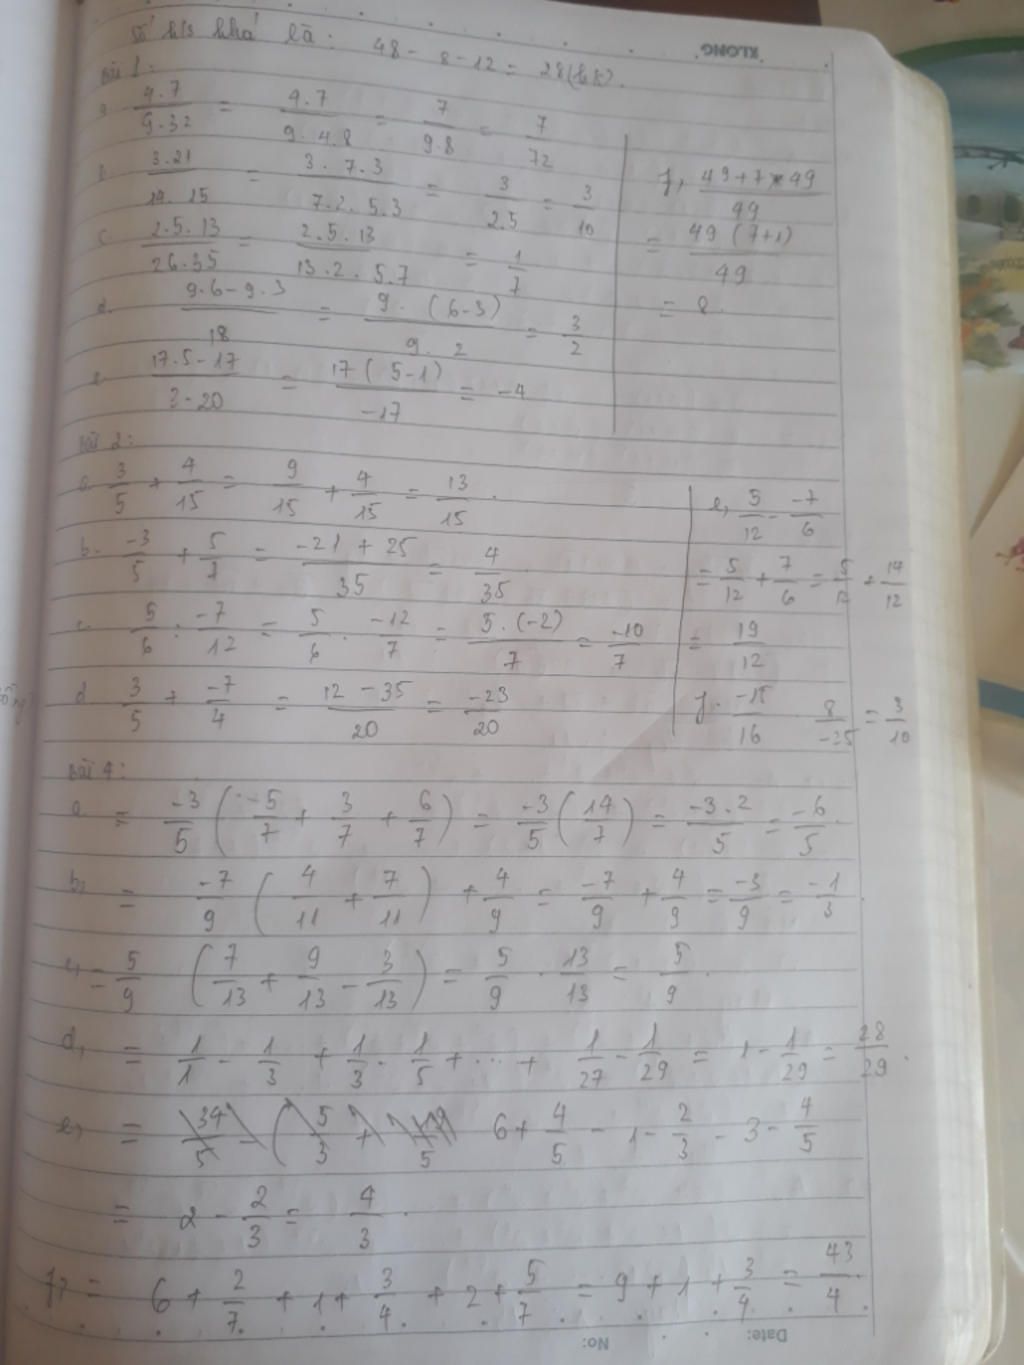 Số h/s khá là: 48 - 8 - 12 = 28 (h/s).
KLONG
Bài 1:
a. 4.7/9.32 = 4.7/9.4.8 = 7/9.8 = 7/72
b. 3.21/14.15 = 3.7.3/7.2.5.3 = 3/2.5 = 3/10
c. 2.5.13/26.35 = 2.5.13/13.2.5.7 = 1/7
d. 9.6-9.3/18 = 9.(6-3)/9.2 = 3/2
e. 17.5-17/3-20 = 17(5-1)/-17 = -4
f, 49+7*49/49
= 49(7+1)/49
= 8.
Bài 2:
a. 3/5 + 4/15 = 9/15 + 4/15 = 13/15.
b. -3/5 + 5/7 = -21+25/35 = 4/35
c. 5/6 : -7/12 = 5/6 . -12/7 = 5.(-2)/7 = -10/7
d. 3/5 + -7/4 = 12-35/20 = -23/20
e, 5/12 - -7/6
= 5/12 + 7/6 = 5/12 + 14/12
= 19/12
f. -15/16 . 8/-25 = 3/10
Bài 4:
a. = -3/5 (-5/7 + 3/7 + 6/7) = -3/5 (14/7) = -3.2/5 = -6/5.
b, = -7/9 (4/11 + 7/11) + 4/9 = -7/9 + 4/9 = -3/9 = -1/3.
c, = 5/9 (7/13 + 9/13 - 3/13) = 5/9 . 13/13 = 5/9.
d, = 1/1 - 1/3 + 1/3 - 1/5 + ... + 1/27 - 1/29 = 1 - 1/29 = 28/29.
e, = 6 + 4/5 - 1 - 2/3 - 3 - 4/5
= 2 - 2/3 = 4/3.
f, = 6 + 2/7 + 1 + 3/4 + 2 + 5/7 = 9 + 1 + 3/4 = 43/4.
No:
Date: